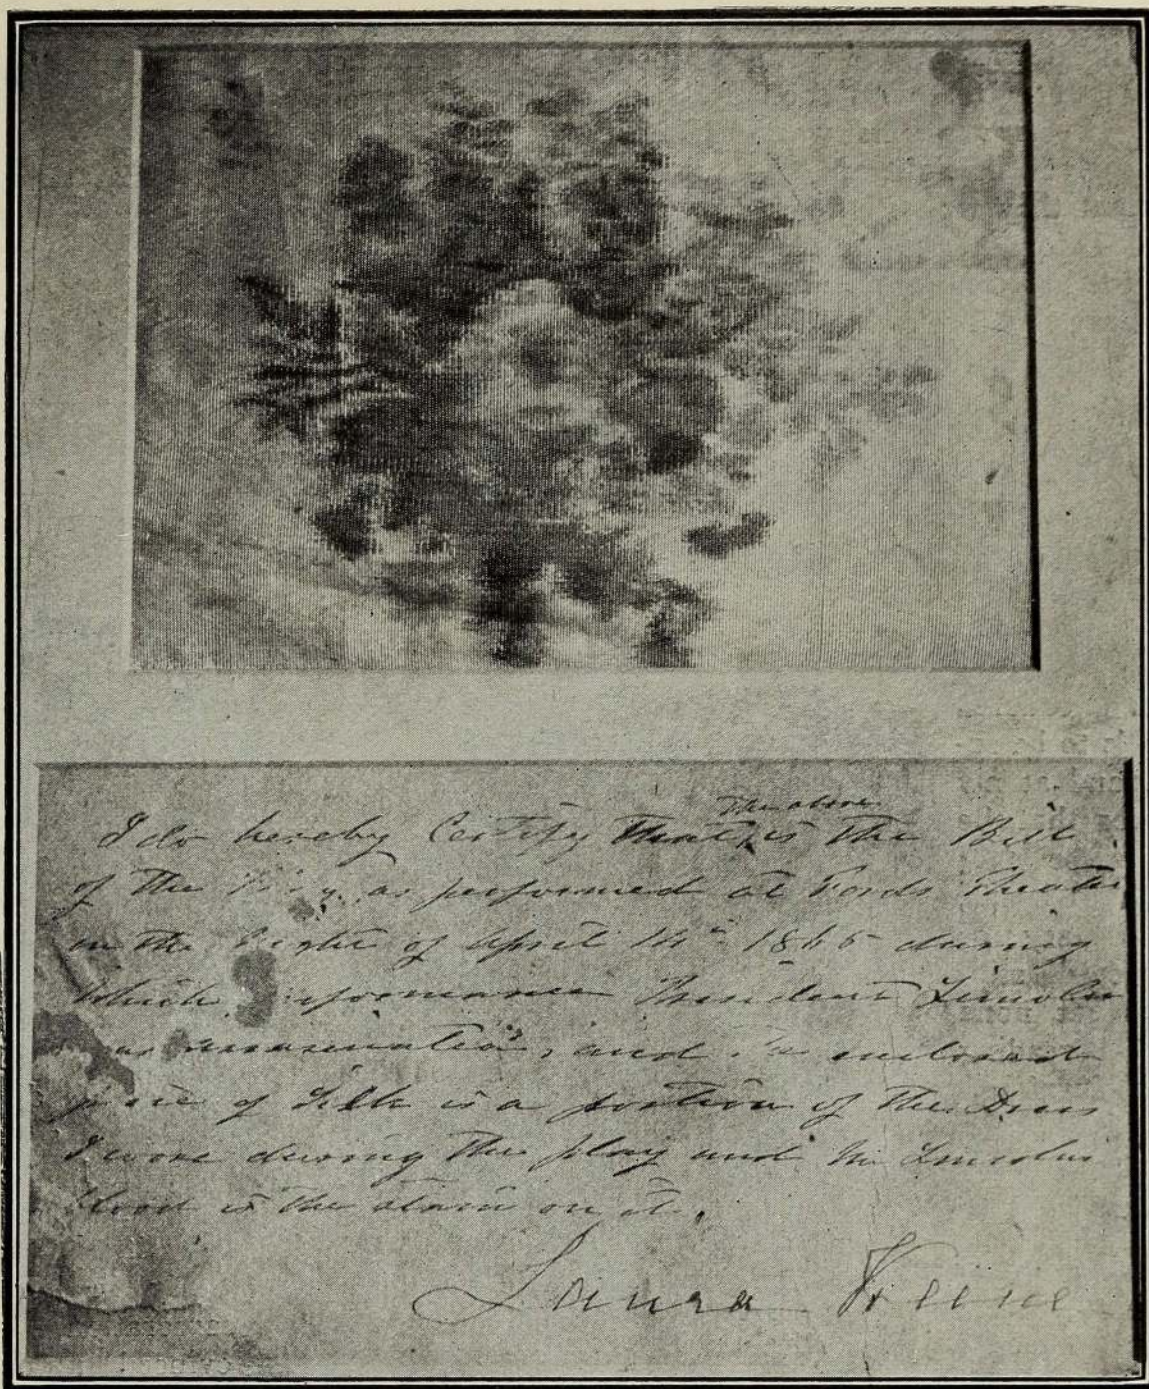 The above
I do hereby Certify that is the Bill
of the Play as performed at Fords Theater
on the Night of April 14th 1865 during
which performance President Lincoln
was assassinated, and the enclosed
piece of Silk is a portion of the Dress
I wore during the play and Mr Lincolns
blood is the stain on it.
Laura Keene